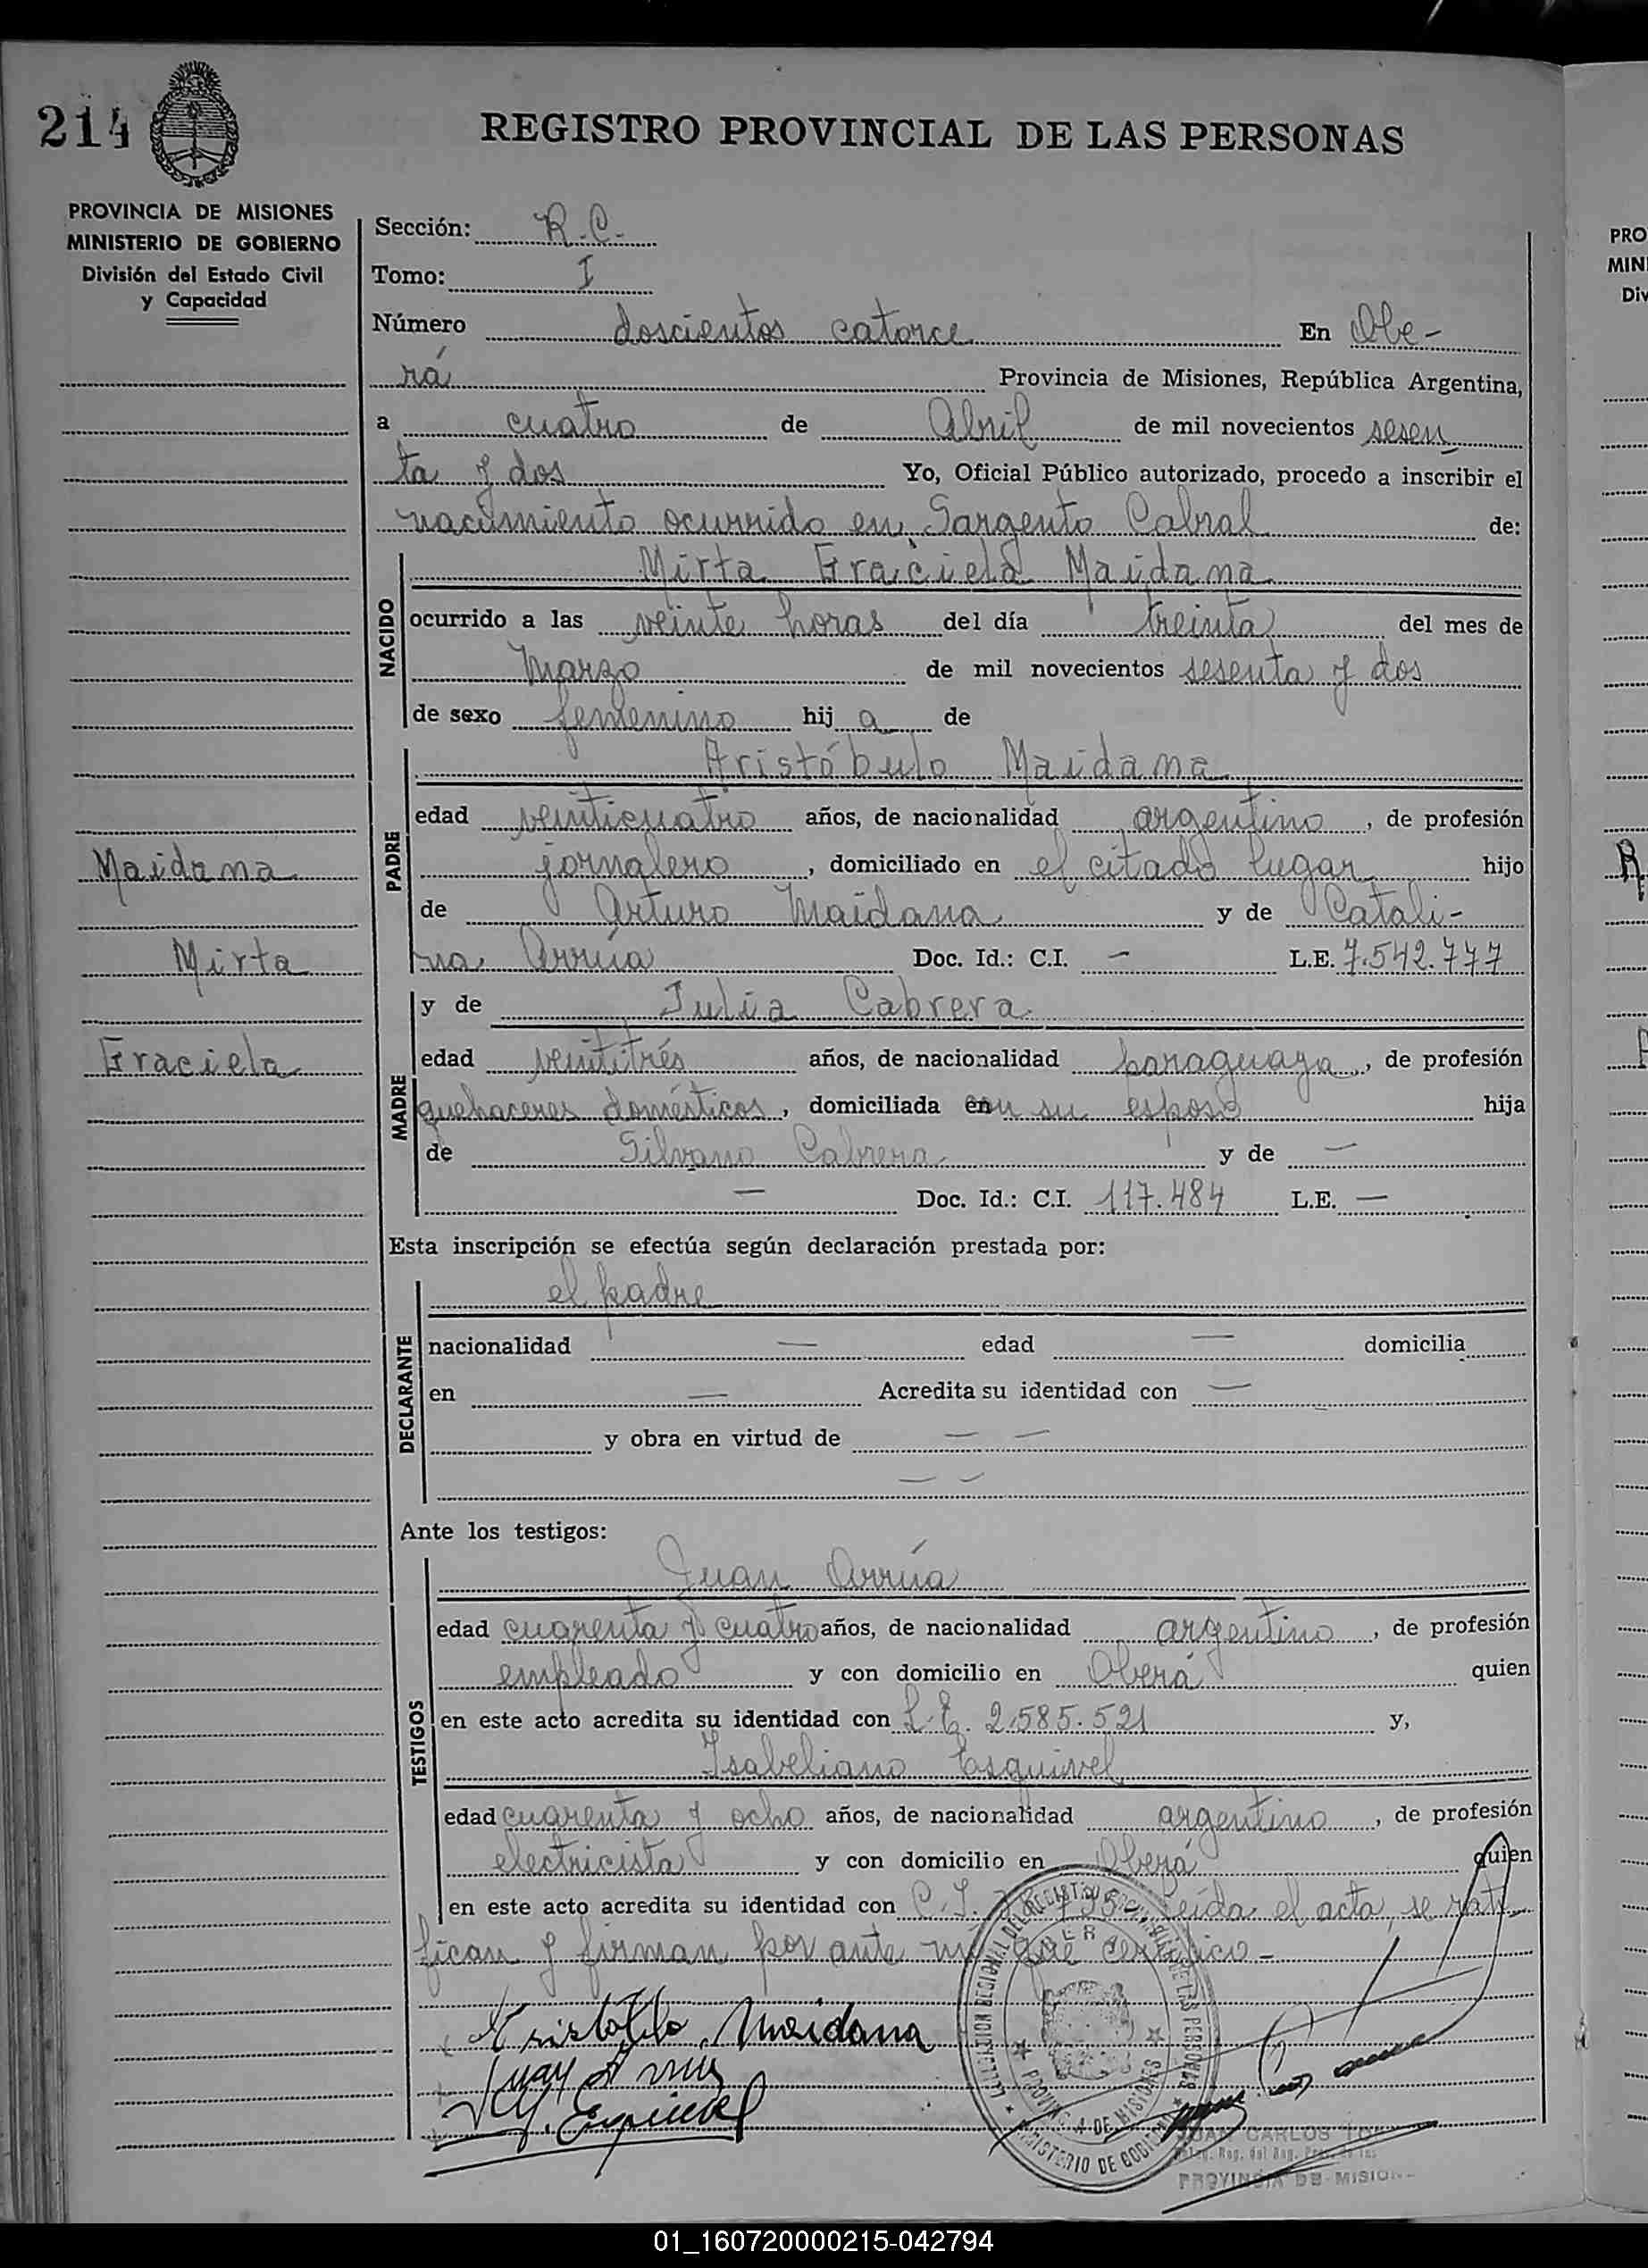 214
REGISTRO PROVINCIAL DE LAS PERSONAS
PROVINCIA DE MISIONES
MINISTERIO DE GOBIERNO
División del Estado Civil
y Capacidad
Sección: R.C.
Tomo: I
Número doscientos catorce En Obe-
rá Provincia de Misiones, República Argentina,
a cuatro de Abril de mil novecientos sesen
ta y dos Yo, Oficial Público autorizado, procedo a inscribir el
nacimiento ocurrido en Sargento Cabral de:
NACIDO
Mirta Graciela Maidana
ocurrido a las veinte horas del día treinta del mes de
Marzo de mil novecientos sesenta y dos
de sexo femenino hij a de
PADRE
Aristóbulo Maidana
edad veinticuatro años, de nacionalidad argentino, de profesión
jornalero, domiciliado en el citado lugar hijo
de Arturo Maidana y de Catali-
na Arrúa Doc. Id.: C.I. — L.E. 7.542.777
Maidana
Mirta
Graciela
MADRE
y de Julia Cabrera
edad veintitrés años, de nacionalidad paraguaya, de profesión
quehaceres domésticos, domiciliada en su esposo hija
de Silvano Cabrera y de —
— Doc. Id.: C.I. 117.484 L.E. —
Esta inscripción se efectúa según declaración prestada por:
DECLARANTE
el padre
nacionalidad — edad — domicilia
en — Acredita su identidad con —
y obra en virtud de — —
— —
Ante los testigos:
TESTIGOS
Juan Arrúa
edad cuarenta y cuatro años, de nacionalidad argentino, de profesión
empleado y con domicilio en Oberá quien
en este acto acredita su identidad con L.E. 2.585.521 y,
Isabeliano Esquivel
edad cuarenta y ocho años, de nacionalidad argentino, de profesión
electricista y con domicilio en Oberá quien
en este acto acredita su identidad con C.I. Leída el acta, se rati-
fican y firman por ante mí que certifico-
Aristóbulo Maidana
Juan Arrúa
Esquivel
PROVINCIA DE MISIONES
MINISTERIO DE GOBIERNO
JUAN CARLOS
PROVINCIA DE MISION
PRO
MIN
Div
01_160720000215-042794